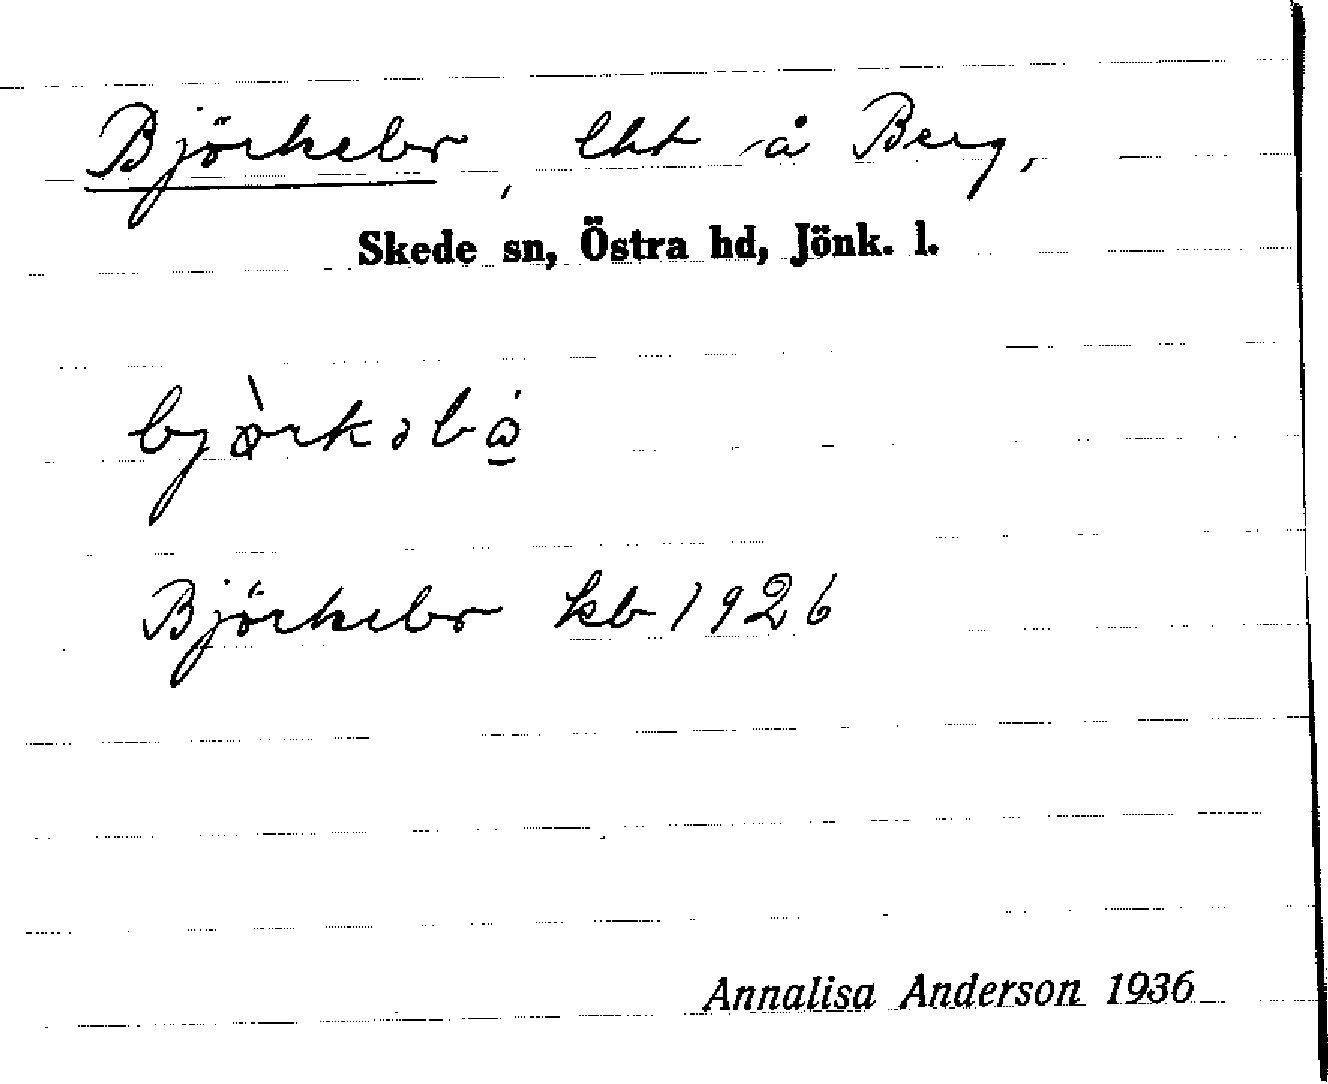 Björkebo, lht å Berg,
Skede sn, Östra hd, Jönk. l.
Björkebo kb 1926
Annalisa Anderson 1936